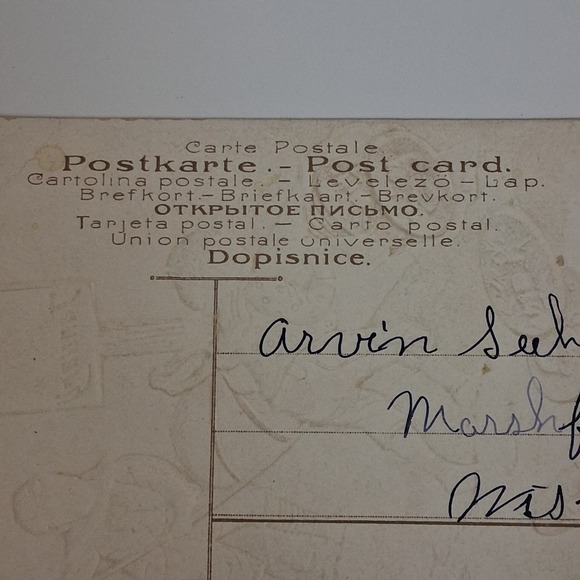 Carte Postale.
Postkarte. - Post card.
Cartolina postale. - Levelező - Lap.
Brefkort.-Briefkaart.-Brevkort.
ОТКРЫТОЕ ПИСЬМО.
Tarjeta postal. - Carto postal.
Union postale universelle.
Dopisnice.
Arvin
Wis.